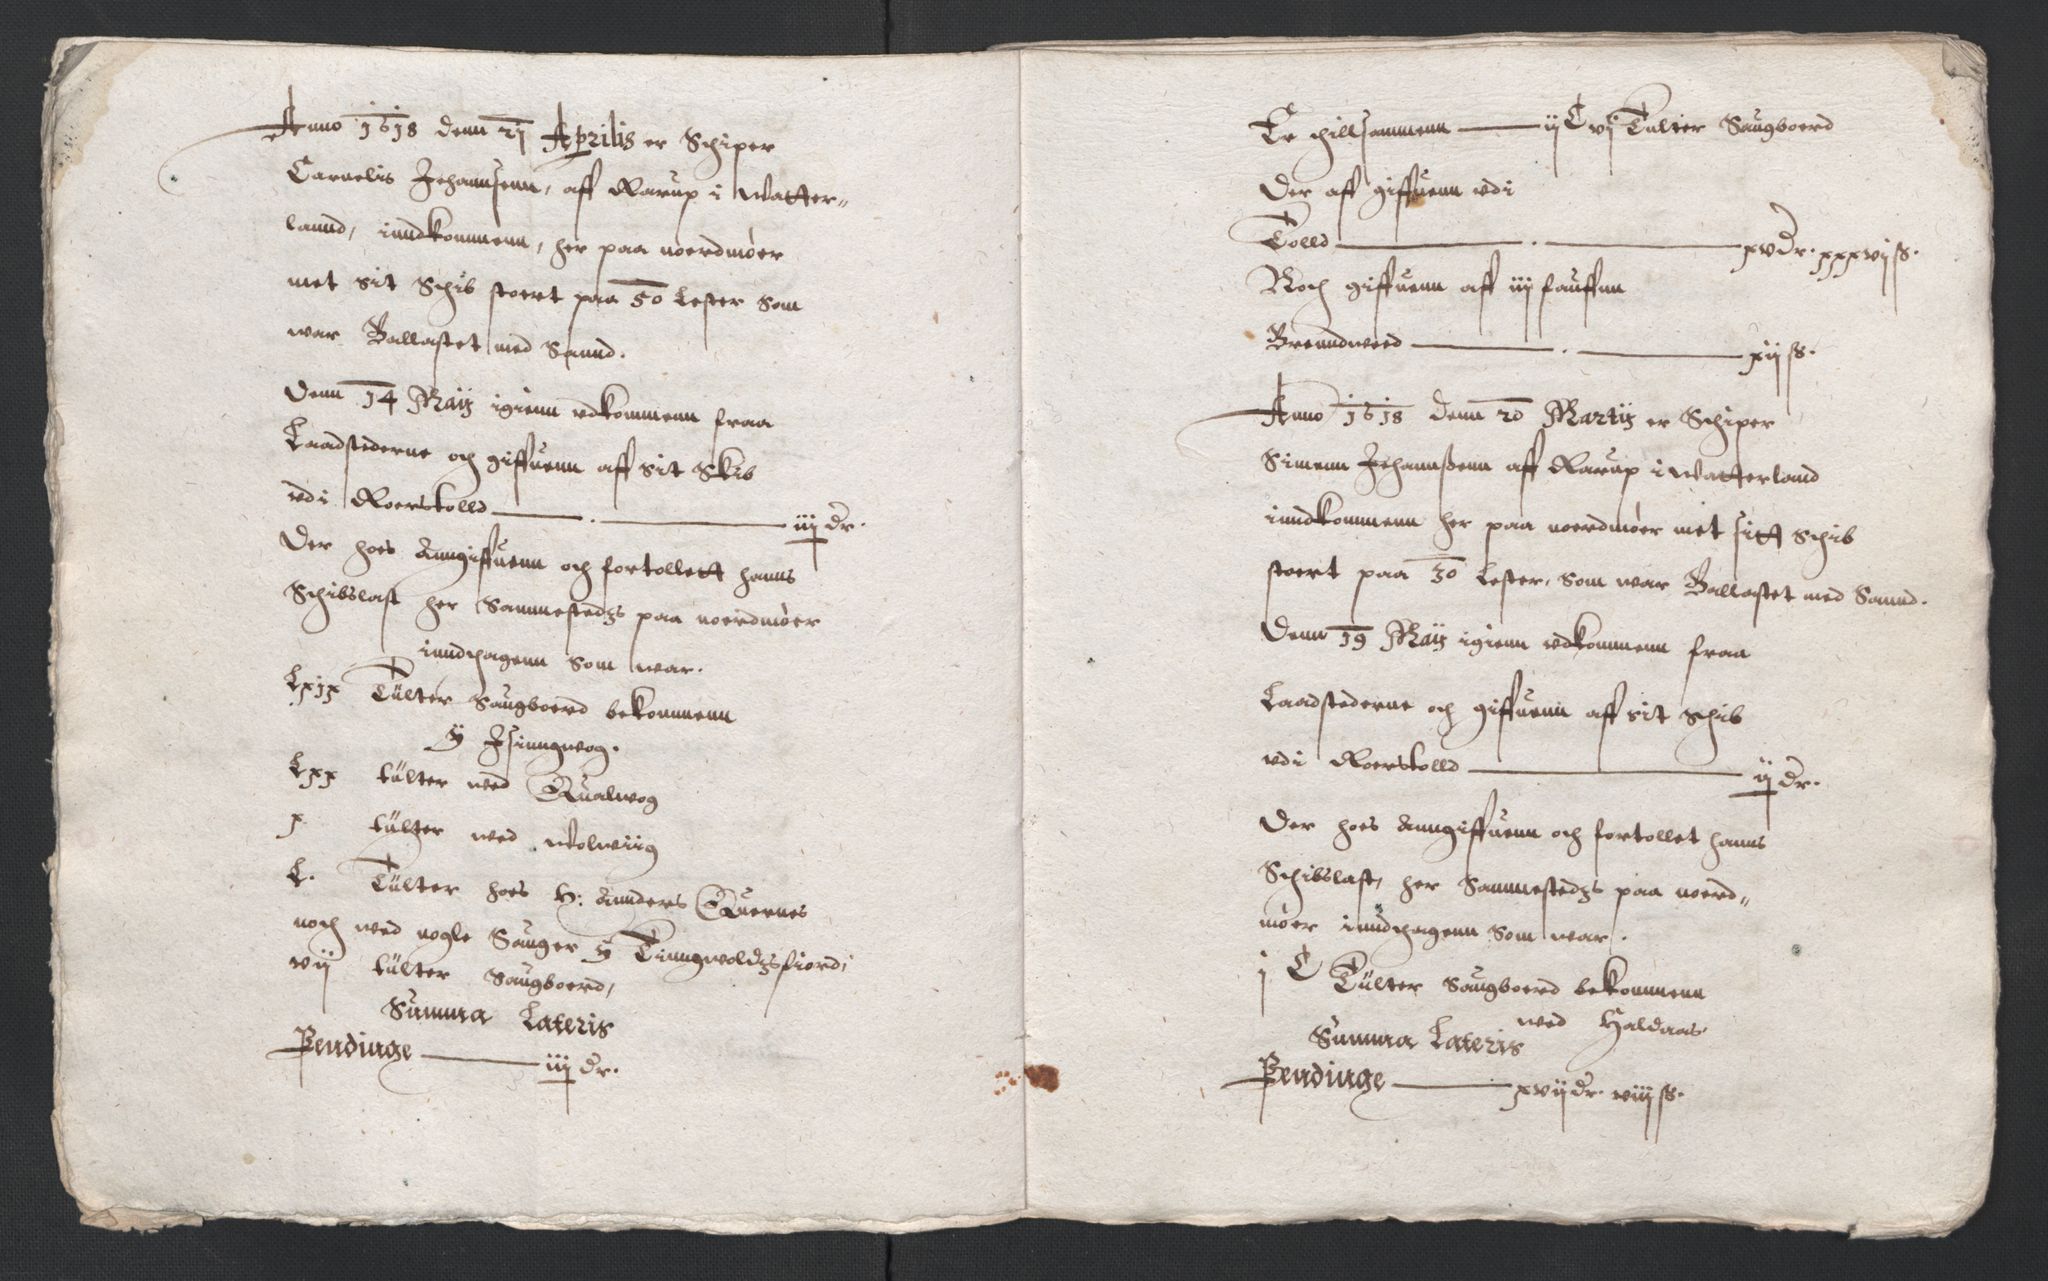 Anno 1618 denn 21 Aprilis er Schiper
Carnelis Jehannsenn, aff Rarup i Watter„
lannd, inndkommenn, her paa noerdmøer
met sit Schib stoert paa 50 Lester som
war Ballastet med Sannd.
Denn 14 Maij igienn vdkommenn fraa
Laadstederne och giffuenn aff sit Skib
vdi Roerstolld — iiij dr.
Der hoes Anngiffuenn och fortollett hanns
Schibslast her Sammestedz paa noerdmøer
inndtagenn som war.
Lxix Tülter Saugboerd bekommenn
y Jsinngwog.
Lxx tülter wed Qualwog
x tülter wed
L. Tülter hoes H: Annders Quernes
noch wed nogle Sauger y Tinngwoldzfiord,
vij tülter Saugboerd,
Summa Lateris
Pendinge — iiij dr.
Er thillsammenn — ij C vj Tülter Saugboerd
Der aff giffuenn vdi
Tolld — xv dr. xxxvij ß.
Noch giffuenn aff iiij fauffnn
Brenndweed — xij ß.
Anno 1618 denn 20 Martij er Schiper
Simenn Jehannßenn aff Rarup i Watterland
inndkommenn her paa noerdmøer met sitt Schib
stoert paa 30 Lester, som war Ballastet med Sannd.
Denn 19 Maij igienn vdkommenn fraa
Laadstederne och giffuenn aff sit Schib
vdi Roerstolld — ij dr.
Der hoes Anngiffuenn och fortollet hanns
Schibslast, her Sammestedz paa noerd„
møer inndtagenn som war.
j C Tülter Saugboerd bekommenn
wed Haldaas
Summa Lateris
Pendinge — xvij dr. viij ß.